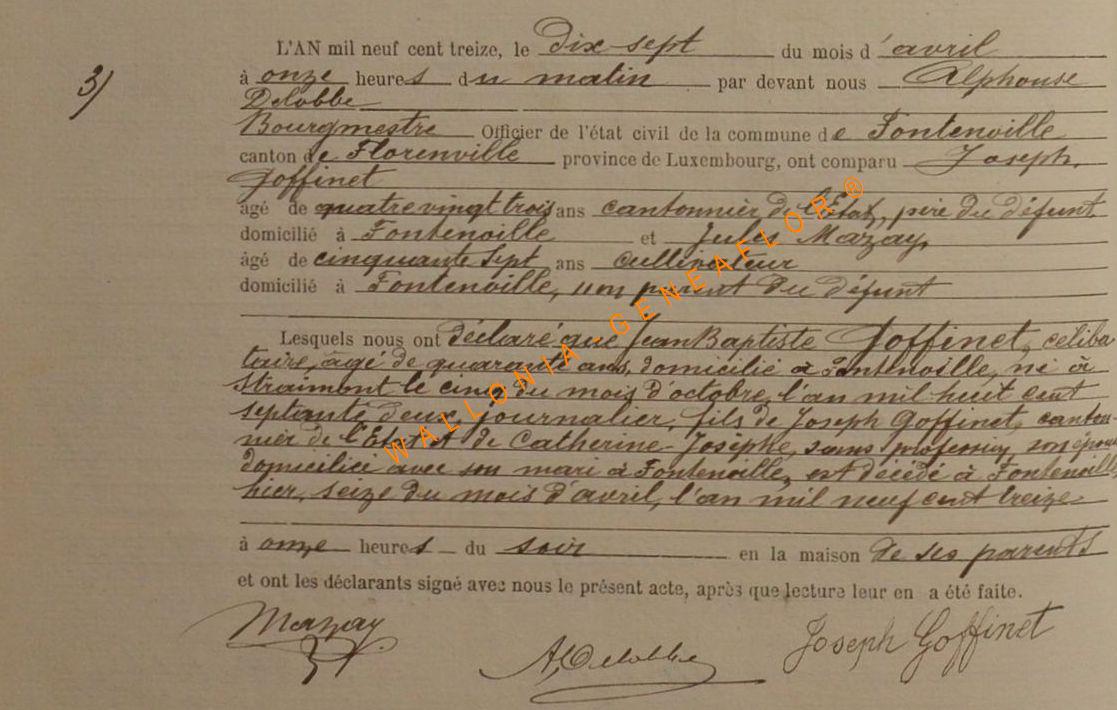 3)
L'AN mil neuf cent treize, le dix sept du mois d'avril
à onze heures du matin par devant nous Alphonse
Delobbe
Bourgmestre Officier de l'état civil de la commune de Fontenoille
canton de Florenville province de Luxembourg, ont comparu Joseph
Goffinet
âgé de quatre vingt trois ans cantonnier de l'Etat, père du défunt
domicilié à Fontenoille et Jules Mazay,
âgé de cinquante sept ans cultivateur
domicilié à Fontenoille, non parent du défunt
Lesquels nous ont déclaré que Jean Baptiste Goffinet, céliba
taire, âgé de quarante ans, domicilié à Fontenoille, né à
Straimont le cinq du mois d'octobre, l'an mil huit cent
septante deux, journalier, fils de Joseph Goffinet, canton
nier de l'Etat et de Catherine Josèphe, sans profession, son épouse
domiciliée avec son mari à Fontenoille, est décédé à Fontenoille
hier, seize du mois d'avril, l'an mil neuf cent treize
à onze heures du soir en la maison de ses parents
et ont les déclarants signé avec nous le présent acte, après que lecture leur en a été faite.
Mazay
A, Delobbe
Joseph Goffinet
WALLONIA-GENEAFLOR®